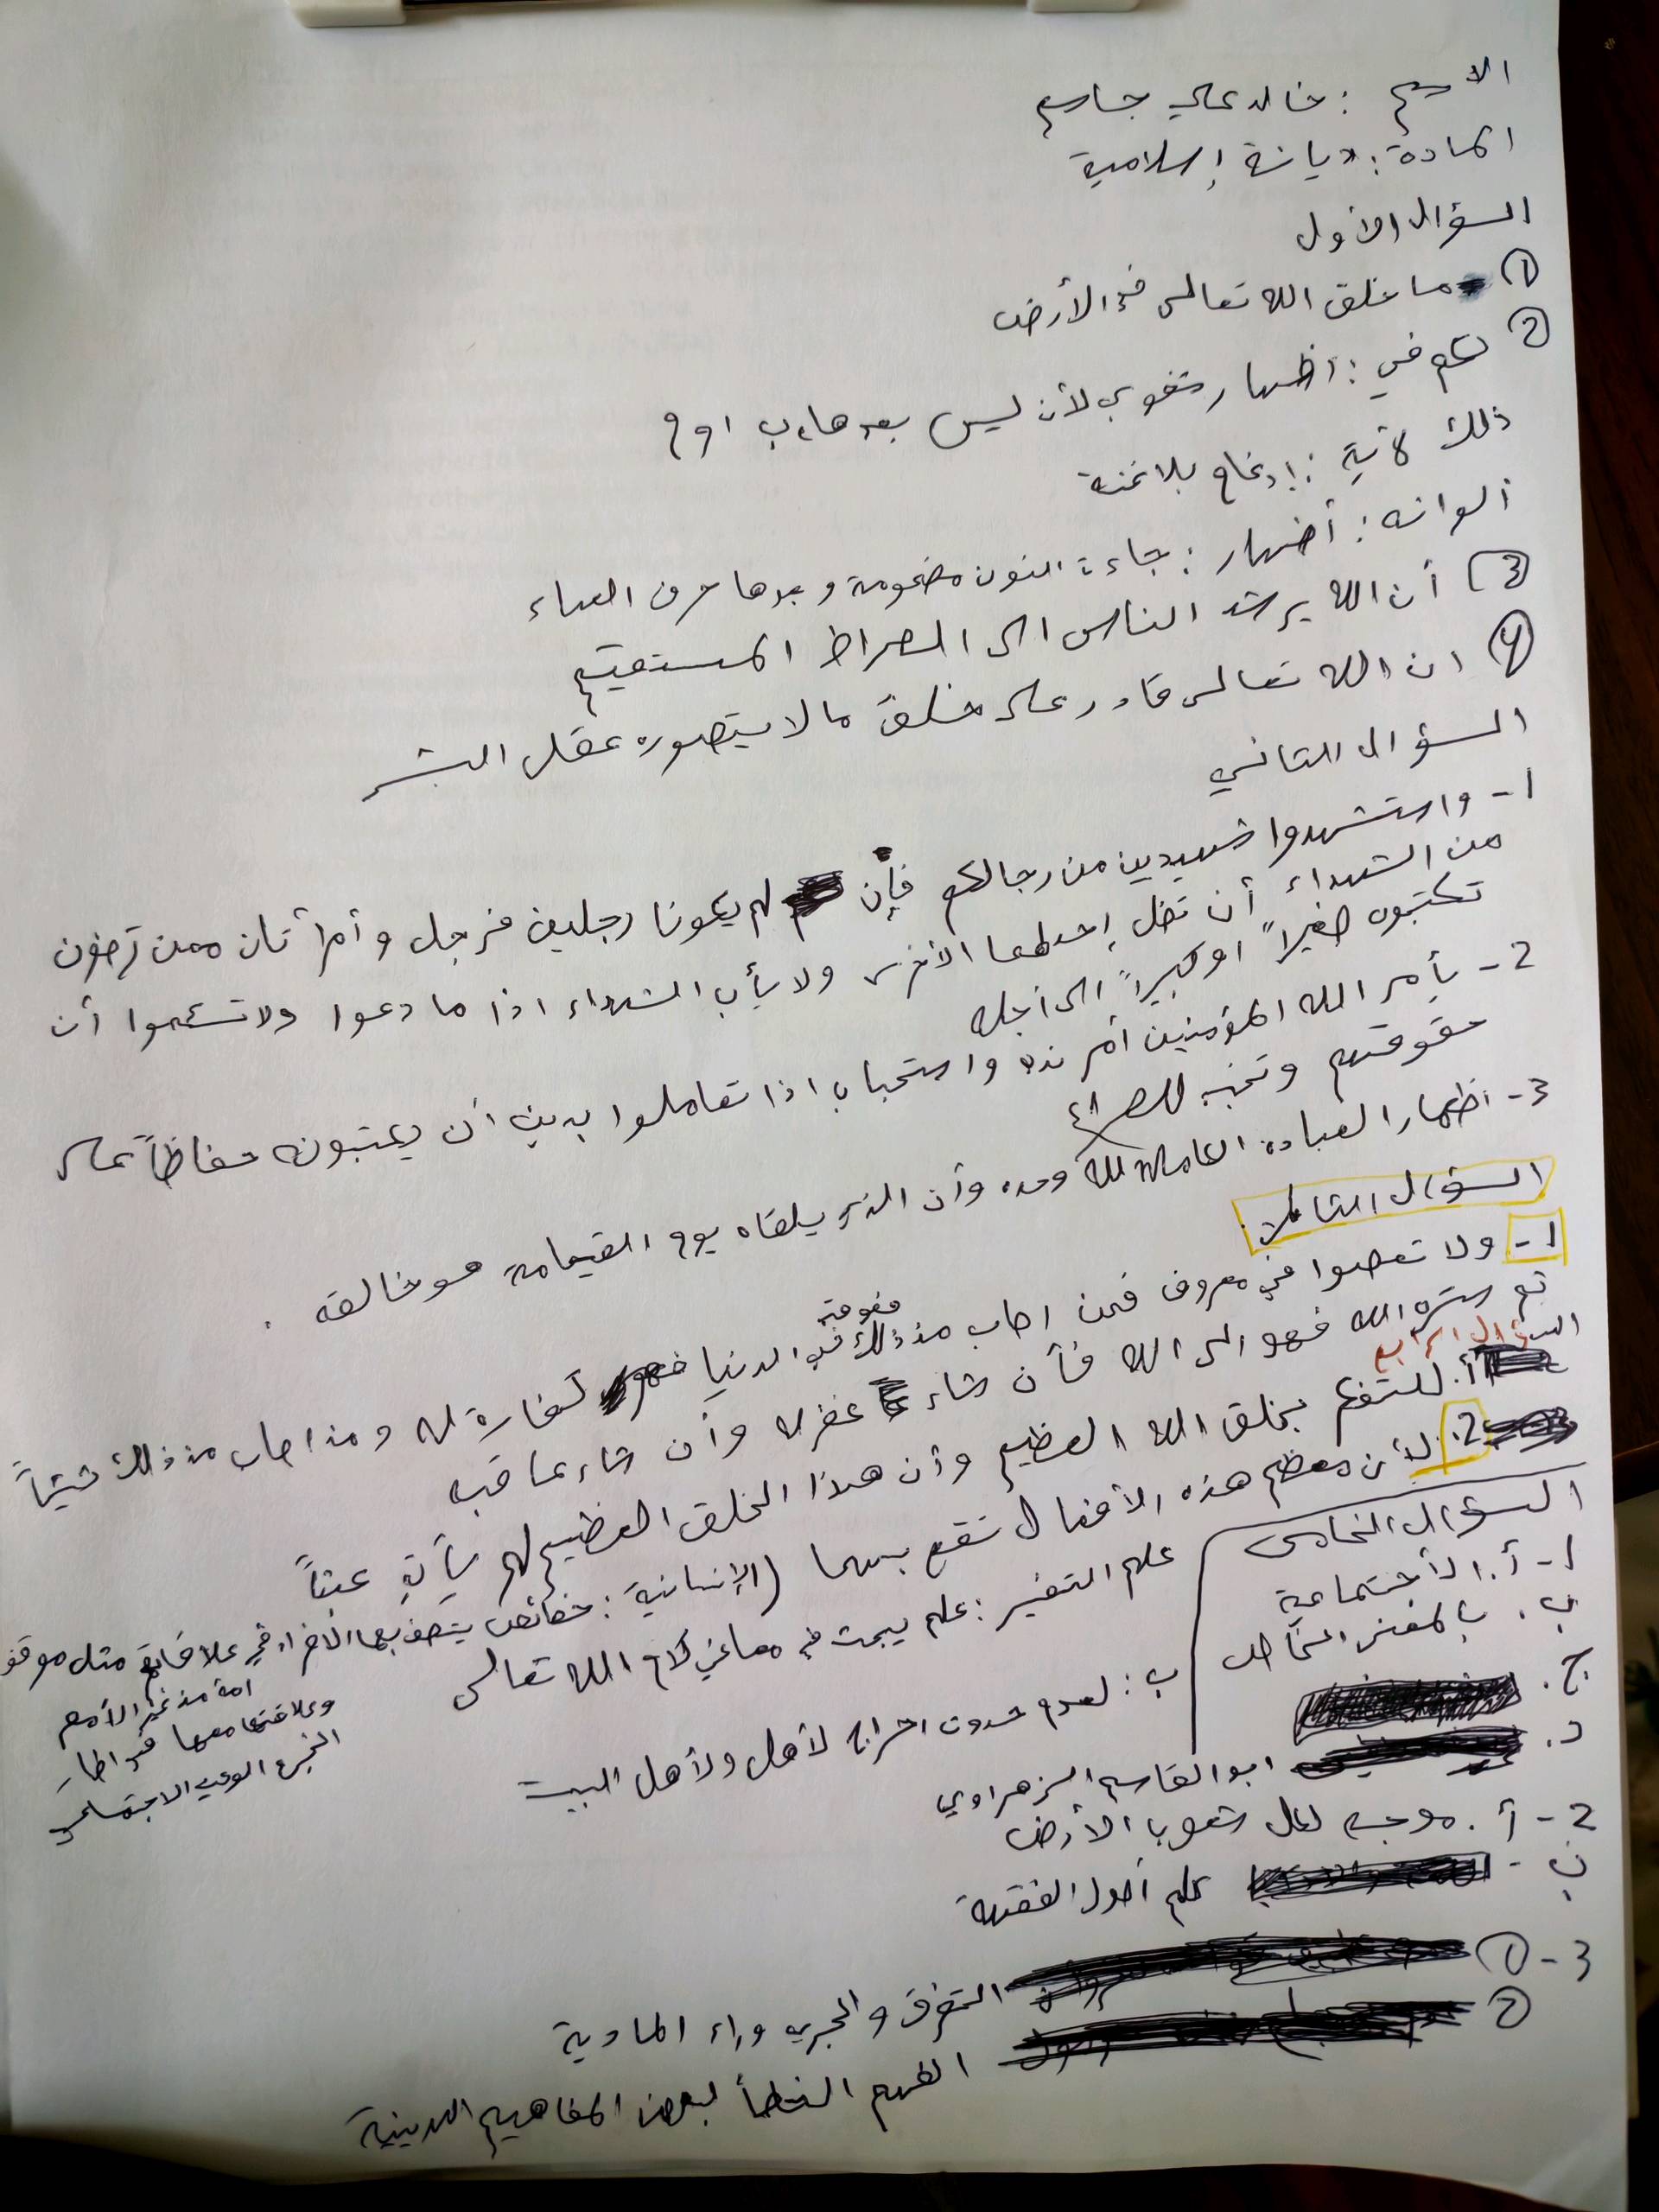 الاسم : خالد علي جاسم
المادة : ديانة إسلامية
السؤال الأول
① ما خلق الله تعالى في الأرض
② لكم في : اظهار شفوي لأن ليس بعدها ب او م
ذلك لآية : إدغام بلا غنة
ألوانه : أضهار : جاءت النون مضمومة و بعدها حرف الهاء
3) أن الله يرشد الناس الى الصراط المستقيم
④ ان الله تعالى قادر على خلق ما لا يتصوره عقل البشر
السؤال الثاني
1- واستشهدوا شهيديين من رجالكم فإن لم يكونا رجلين فرجل و أمرأتان ممن ترضون
من الشهداء أن تضل إحداهما الأخرى ولا يأب الشهداء اذا ما دعوا ولا تسئموا أن
تكتبوه صغيراً او كبيراً الى أجله
2- يأمر الله المؤمنين أمر ندب واستحباب اذا تعاملوا بدين أن يكتبونه حفاظاً على
حقوقهم وتجنب للصراع
3- اظهار العبادة الكاملة لله وحده وأن الذي يلقاه يوم القيامة هو خالقه .
السؤال الثالث
1- ولا تعصوا في معروف فمن اصاب من ذلك في الدنيا عقوبة كفارة له ومن اصاب من ذلك شيئاً
ثم ستره الله فهو الى الله فأن شاء عفر له وأن شاء عاقبه
السؤال الرابع
أ. للتفكر بخلق الله العظيم وأن هذا الخلق العظيم لم يأتِ عبثاً
2. لأن معظم هذه الأفعال تقع بهما (الإنسانية : خصائص يتصف بها الافراد في علاقاتهم مثل موقف
امة من غير الأمم
وعلاقتها معها في اطار
الخير الوعي الاجتماعي
السؤال الخامس
علم التفسير : علم يبحث في معاني كلام الله تعالى
1- أ. الأجتماعية
ب. بالمعنى الخاص
ب : لعدم حدوث احراج لأهل ولأهل البيت
ج.
د. ابو القاسم الزهراوي
2- أ. موجه لكل شعوب الأرض
ب - علم أصول الفقهة
3- ① التفرق والجري وراء المادية
② الفهم الخطأ لبعض المفاهيم الدينية